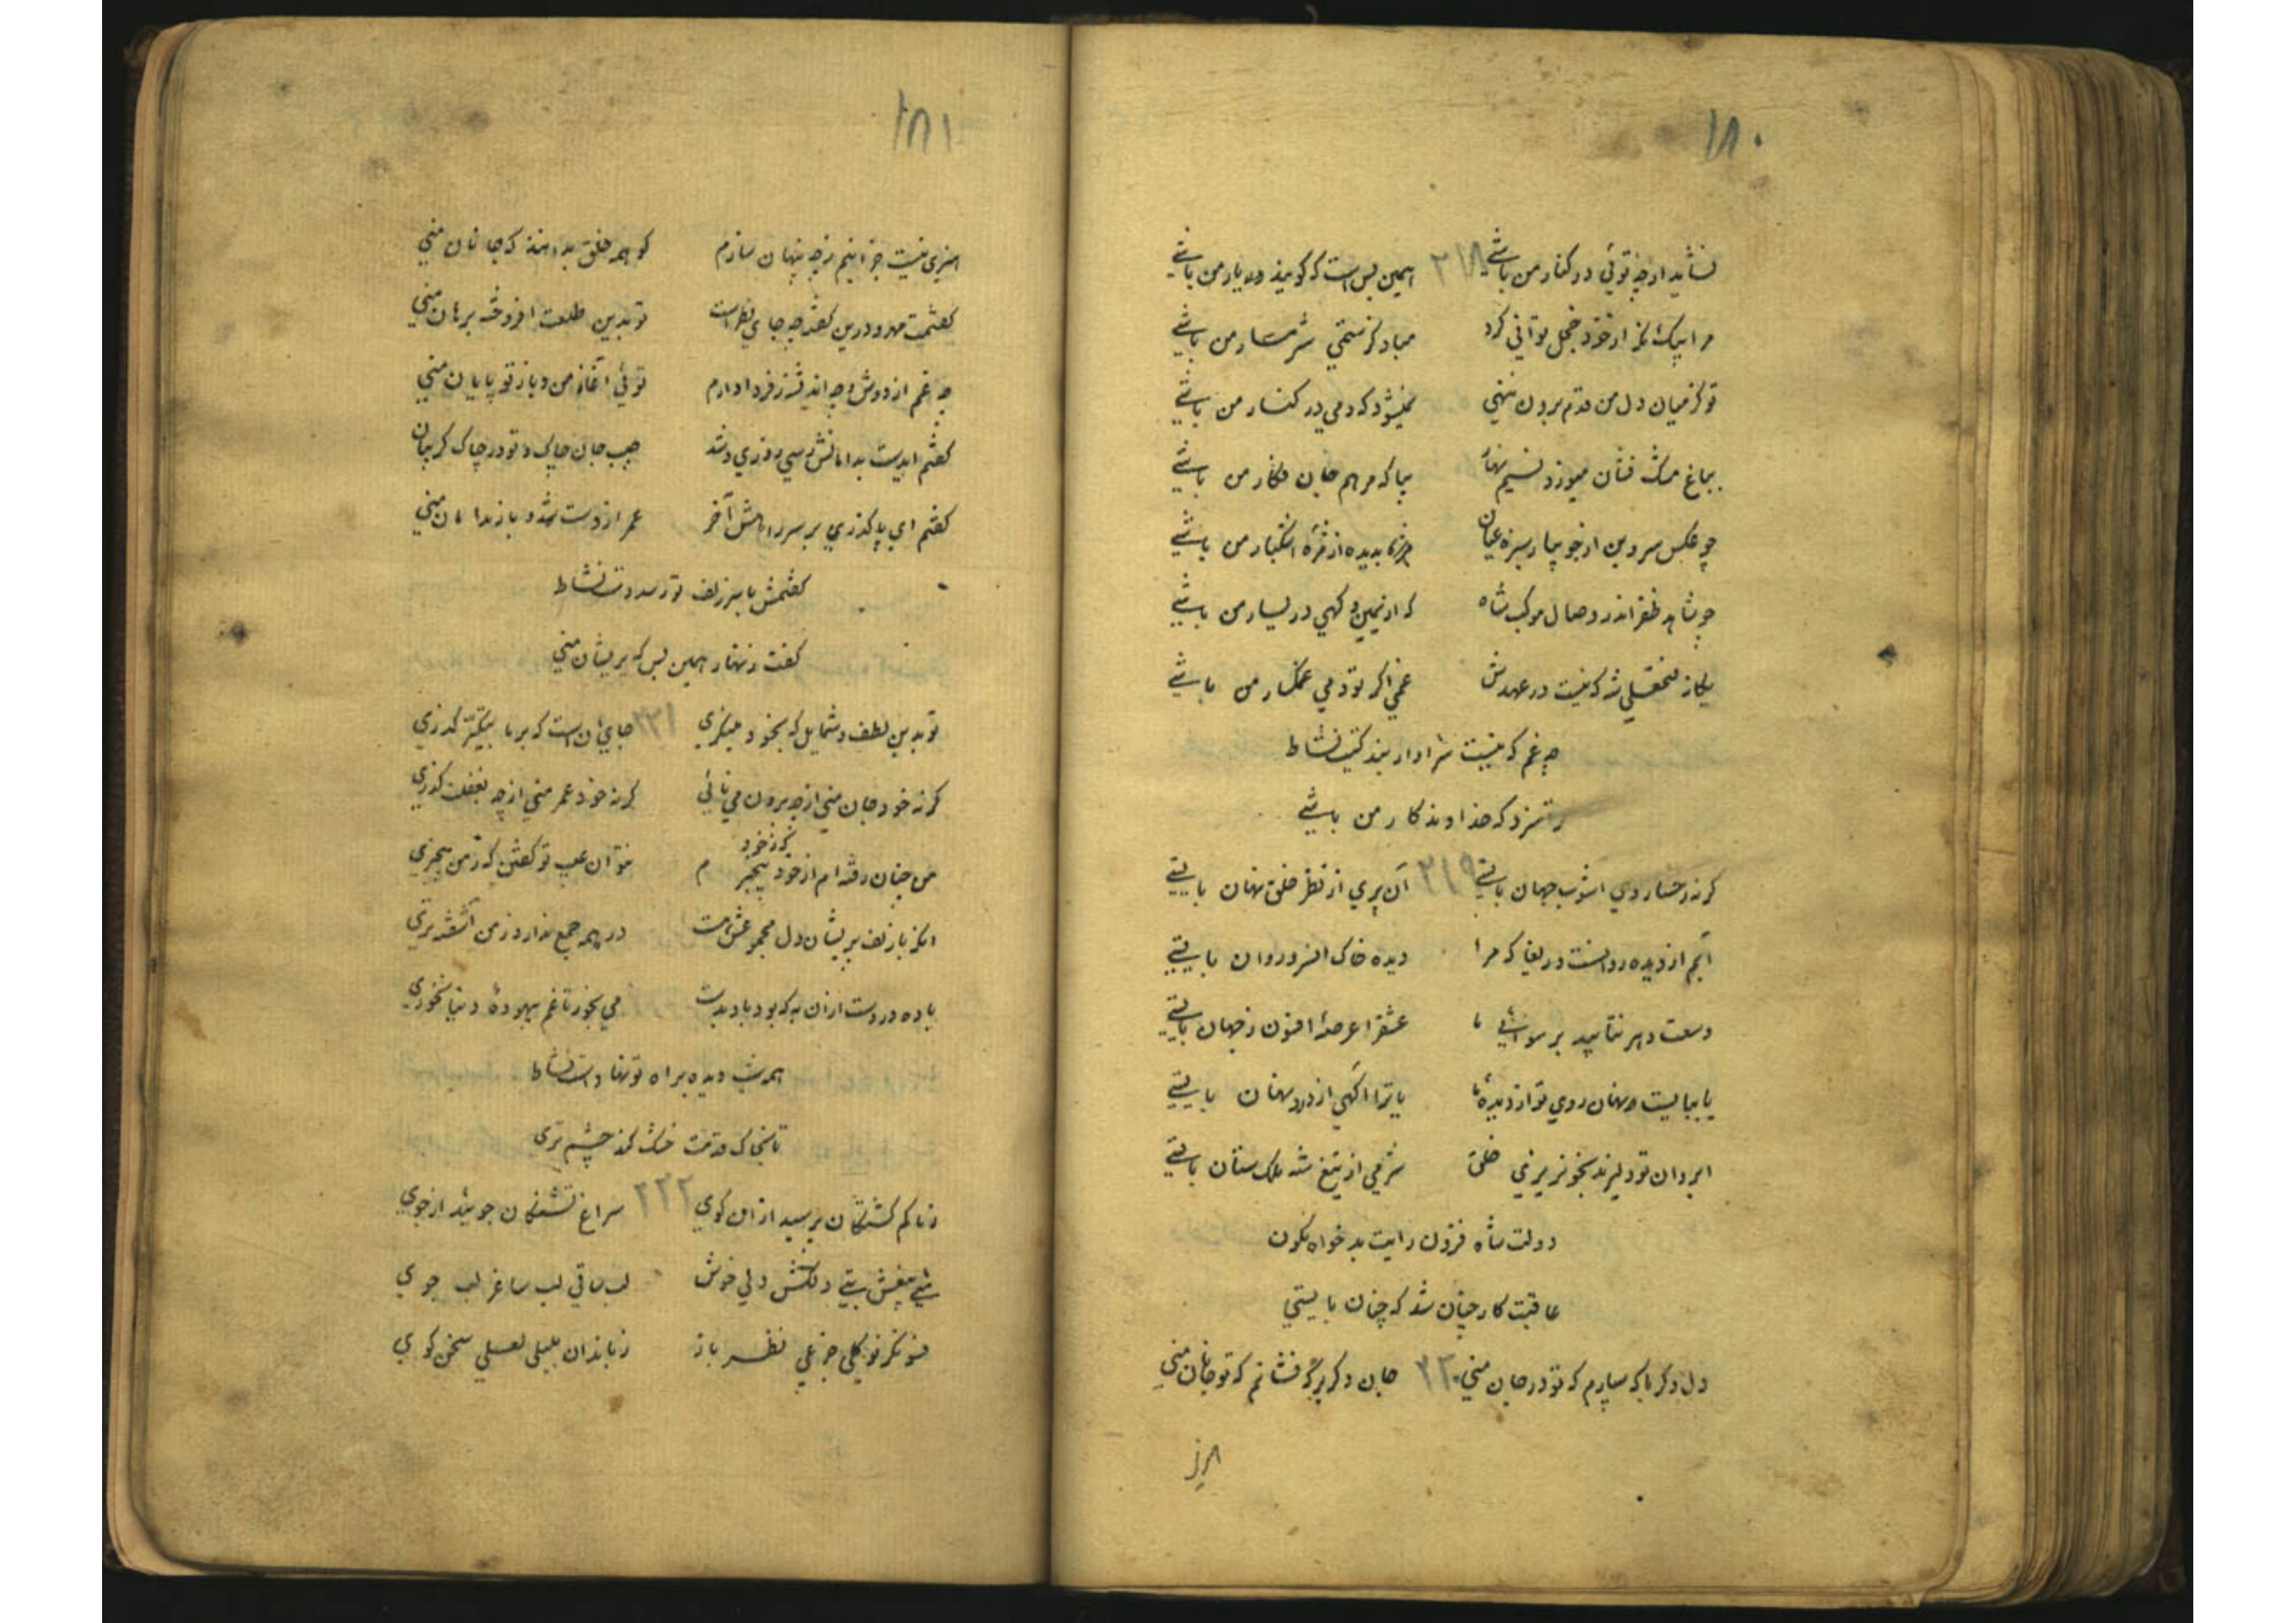 ۱۸۰
نشاید ارچه توئی در کنار من باشی ۲۱۸ همین بس است که گویند یار من باشی
مرا بیک نکه از خود خجل توانی کرد مباد کز ستمی شرمسار من باشی
تو کز میان دل من قدم برون ننهی نمیشود که دمی در کنار من باشی
بباغ مشک فشان میوزد نسیم بهار بیا که مرهم جان فکار من باشی
چو عکس سرو بن از جویبار سبزه عیان بدیده از مژه اشکبار من باشی
چو شاهد ظفر اندر وصال موکب شاه که از یمین و گهی در یسار من باشی
یگانه فتحعلی شه که نیست در عهدش غمی اگر تو دمی غمگسار من باشی
چه غم که نیست سزاوار بندگیت نشاط
ترا سزد که خداوندگار من باشی
گر نه رخسار وی آشوب جهان بایستی ۲۱۹ آن پری از نظر خلق نهان بایستی
آبم از دیده روانست دریغا که مرا دیده خاک آن سرو روان بایستی
وسعت دهر نتابید برسوائی ما عشق را عرصهٔ افزون ز جهان بایستی
یا ببایست نهان روی تو از دیدهٔ ما یا ترا آگهی از درد نهان بایستی
ابروان تو دلیرند بخونریزی خلق شرمی از تیغ شه ملک ستان بایستی
دولت شاه فزون رایت بدخواه نگون
عاقبت کار چنان شد که چنان بایستی
دل دگر با که سپارم که تو در جان منی ۲۲۰ جان دگر بر که فشانم که تو جانان منی
هنری
۱۸۱
هنری نیست جز اینم ز چه پنهان سازم گو همه خلق بدانند که جانان منی
گفتمت مهر و درین گفته چه جای نظر است تو بدین طلعت افروخته برهان منی
چه غم از دوش و چه اندیشه ز فردا دارم توئی آغاز من و باز تو پایان منی
گفتم ای دست بدامانش رسی روزی و شد جیب جان چاک و تو در چاک گریبان منی
گفتم ای پا گذری بر سر راهش آخر عمر از دست شد و باز بدامان منی
گفتمش با سر زلف تو رسد دست نشاط
گفت زنهار همین بس که پریشان منی
تو بدین لطف و شمایل که بخود مینگری ۲۲۱ جای آن است که بر ما بتکبر گذری
گر نه خود جان منی از چه برون می نائی گر نه خود عمر منی از چه بغفلت گذری
گر ز خود
من چنان رفته ام از خود بیخبرم نتوان عیب تو گفتن که ز من بیخبری
گر باز زلف پریشان دل مجموعش هست در همه جمع ندارد ز من آشفته تری
باده در دست از آن به که بود باد بدست می بخور تا غم بیهودهٔ دنیا نخوری
همه شب دیده براه تو نهاد است نشاط
تا بخاک قدمت خشک کند چشم تری
ز ما گم گشتگان پرسید از آن کوی ۲۲۲ سراغ تشنگان جوئید از جوی
شبی بیغش بتی دلکش دلی خوش لب ساقی لب ساغر لب جوی
فسونگر نوگلی جزعی نظر باز زباندان بلبلی لعلی سخن گوی